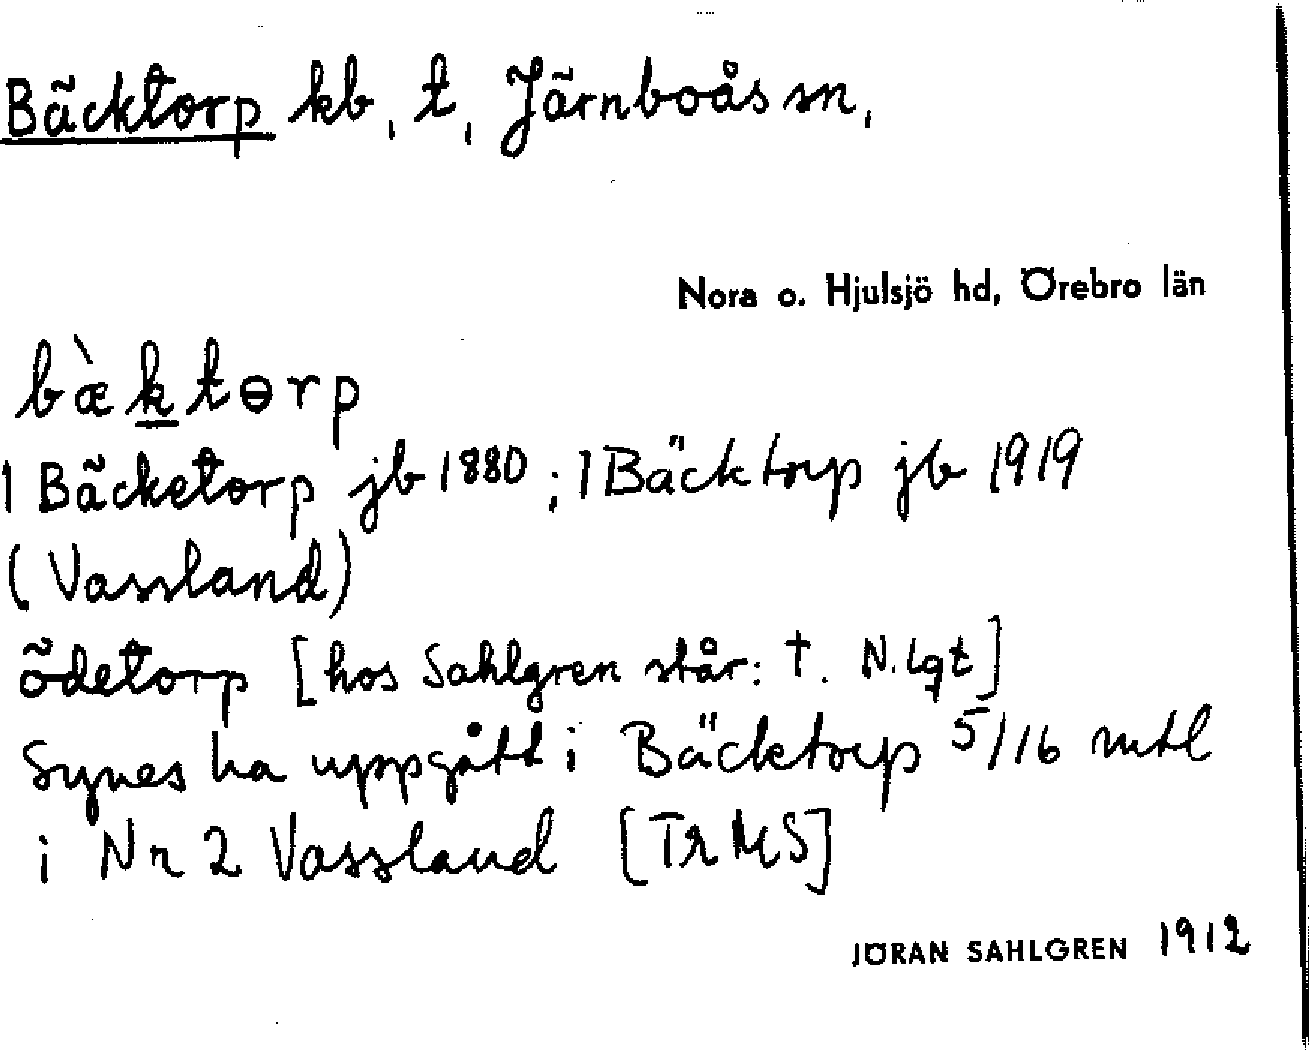 Bäcktorp kb, t, Järnboås sn,
Nora o. Hjulsjö hd, Örebro län
bæ̀ktɵrp
1 Bäcketorp jb 1880; 1 Bäcktorp jb 1919
(Vassland)
ödetorp [hos Sahlgren står: †. N.Lgt]
Synes ha uppgått i Bäcketorp 5/16 mtl
i Nr 2 Vassland [TrMS]
JÖRAN SAHLGREN 1912